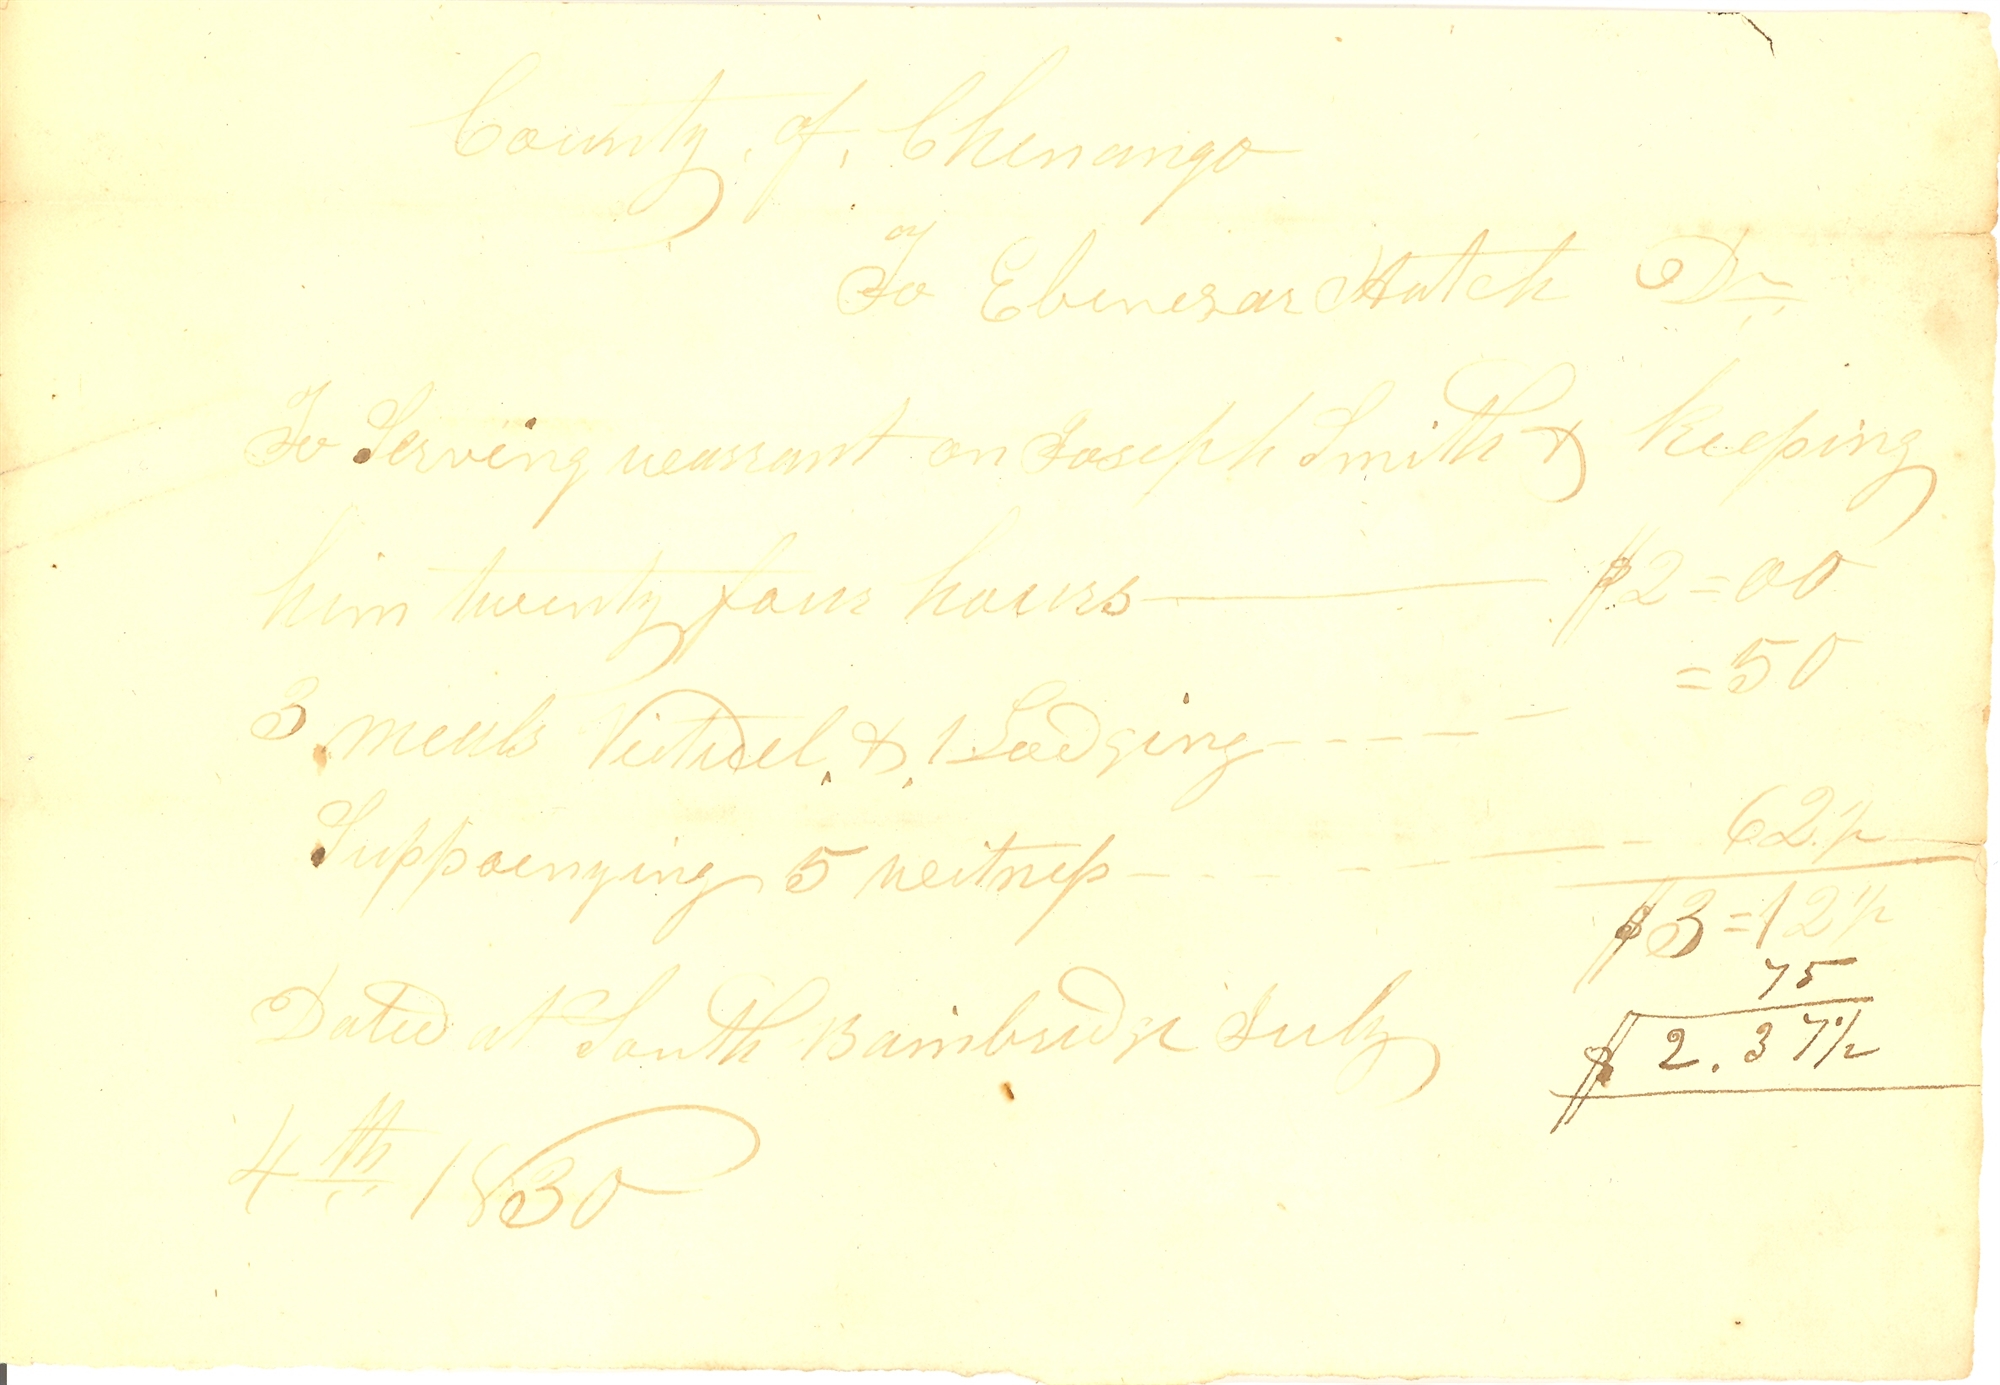 County of Chenango
To Ebenezar Hatch Dr
To Serving warrant on Joseph Smith & keeping
him twenty four hours $2=00
3 meals Victuel & 1 Lodging =50
Suppoenying 5 witness 62½
$3=12½
75
$2.37½
Dated at South Bainbridge July
4th 1830